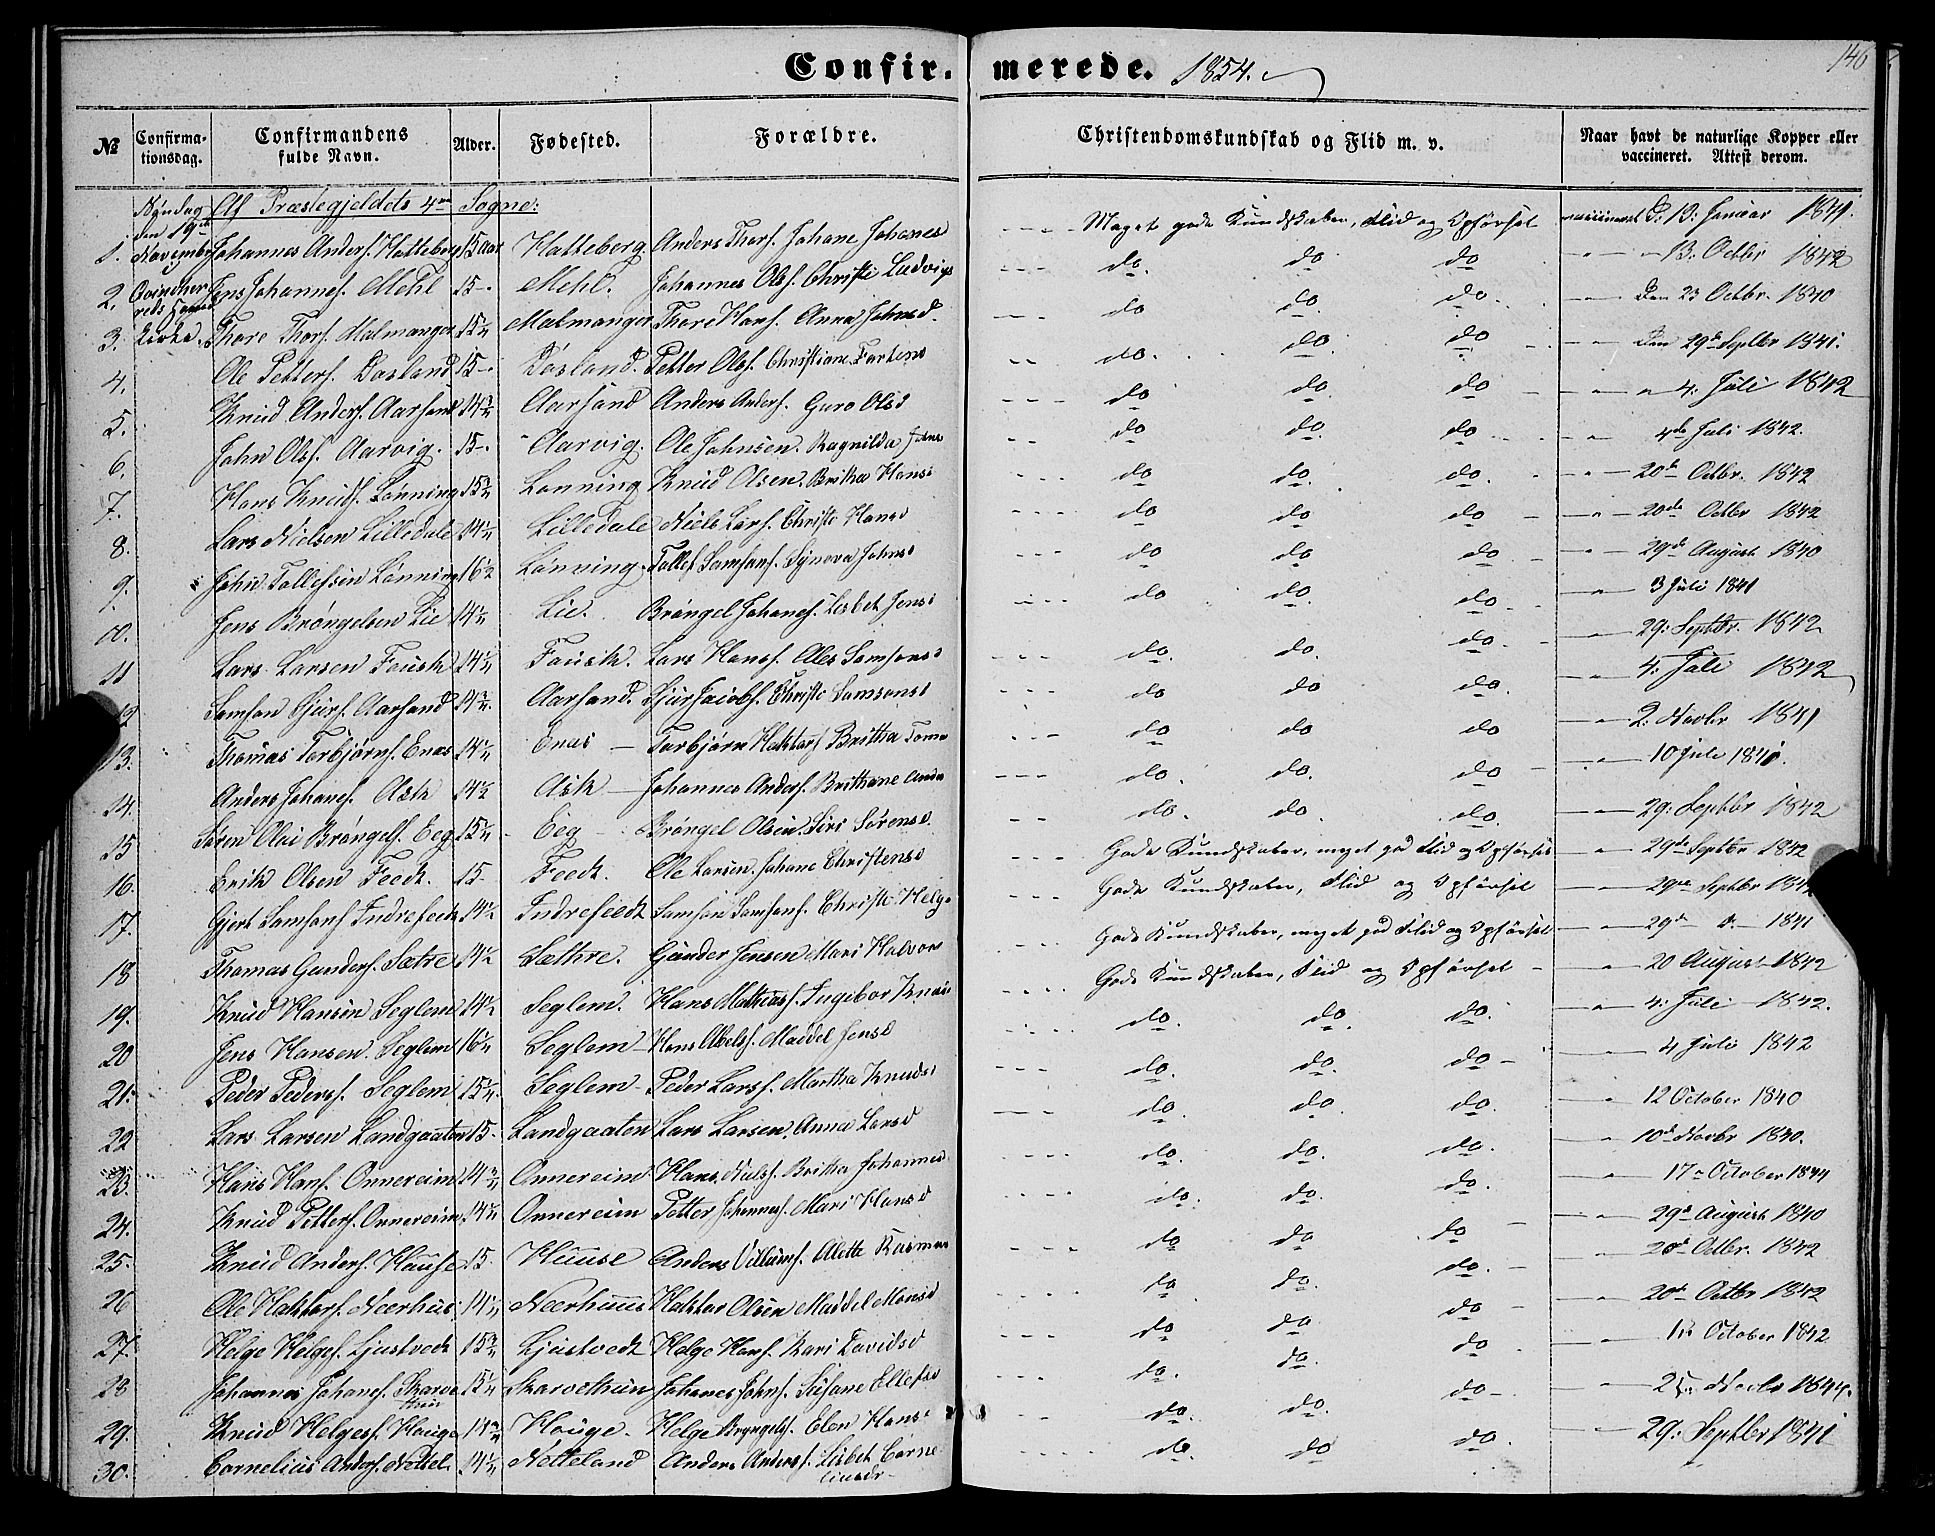 146
Confir- merede. 1854.
№ Confirma-tionsdag. Confirmandens fulde Navn. Alder. Fødested. Forældre. Christendomskundskab og Flid m. v. Naar havt de naturlige Kopper eller vaccineret. Attest derom.
Af Præstegjeldets 4re Sogne:
Søndag den 19de November Qvindherreds Hoved Kirke.
1. Johannes Anders. Hatteberg 15 aar Hatteberg Anders Thors. Johane Johanes Meget gode Kundskaber, Flid og Opførsel vaccineret D: 13: Januar 1841.
2. Jens Johannes. Mehl 15 Mehl. Johannes Ols. Christi Ludvigs do do do 13. Octbr 1842
3. Thore Thors. Malmanger 15 Malmanger Thore Hans. Anna Johnsd. do do do Den 23 Octbr. 1840
4. Ole Petters. Dosland 15 Dosland. Petter Ols. Christiane do. do do Den 29de Septbr 1841.
5. Knud Anders. Aarsand 14 Aarsand Anders Anders. Guro Olsd do do do 4. Juli 1842
6. John Ols. Aarvig. 15 Aarvig. Ole Johnsen. Ragnilda do do. do 4de Juli 1842.
7. Hans Knuds. Lønning 15 Lønning Knud Olsen. Britha Hans: do do. do. 20de Octbr. 1842
8. Lars Nielsen Lilledale 14 Lilledale Niels Lars. Christi Hansd do do do 20de Octbr 1842
9. John Tollefsen Lønning 16 Lønning. Tollef Samsons. Synova Johns: do do do 29de August 1840
10. Jens Brøngelsen Lie 14 Lie. Brøngel Johanes. Lisbet Jens: do do. do. 3 Juli 1841
11 Lars Larsen Fousk 14 Fousk. Lars Hans. Ales Samsons: do. do. do 29. Septbr. 1842
12 Samson Sjurs. Aarsand 14 Aarsand. Sjur Jacobs. Christi Samsons: do do do. 4. Juli 1842
13. Thomas Torbjørns. Enas 14 Enas Torbjørn Haktors Britha do do do 2. Novbr 1841
14. Anders Johanes. Ask 14 Ask Johannes Anders. Brithane do. do. do 10 Juli 1841.
15 Søren Olai Brøngels. Eeg 15 Eeg Brøngel Olsen. Siri Sørensd. do. do. do. 29. Septbr 1842
16. Erik Olsen Feedt. 15 Feedt. Ole Larsen. Johane Christensd Gode Kundskaber, meget god Flid og Opførsel 29de Septbr 1842
17. Gjert Samsons Indrefeedt 14 Indrefeedt Samson Samsons. Christi Helge Gode Kundskaber, Flid og Opførsel 29de Septbr 1842
18 Thomas Gunders. Sætre 14 Sæthre. Gunder Jensen Mari Halvors Gode Kundskaber, meget god Flid og Opførsel 29de 1841
19. Knud Hansen Seglem 14 Seglem. Hans Mathias. Ingebor Gode Kundskaber, Flid og Opførsel 20 August 1842
20 Jens Hansen. Seglem 16 Seglem Hans Abels. Maddel Jensd do. do do. 4. Juli 1842.
21. Peder Peders. Seglem 15 Seglem Peder Lars. Martha Knuds: do. do. do 4 Juli 1842
22 Lars Larsen Landgaaten 15. Landgaaten Lars Larsen. Anna Larsd do do. do. 12 October 1840
23. Hans Hans. Onnereim 14 Onnereim Hans Niels. Britha Johannes do. do. do. 10de Novbr 1840.
24. Knud Petters. Onnereim 14 Onnereim Petter Johannes. Mari Hansd do. do. do. 17 October 1844
25. Knud Anders. Hause 15. Huuse Anders Villums. Alette Rasmus do do do 29de August 1840
26 Ole Haktors. Neerhus. 14 Neerhuus Haktor Olsen Maddel Monsd do do. do. 20de Octbr. 1842
27. Helge Helges. Ljustvedt 15 Ljustvedt Helge Hans. Kari Davidsd do do. do 20de Octbr 1842
28 Johannes Johanes. Skarvethun 15 Skarvethun Johanes Johns. Susane Ellefsd do. do. do October 1842
29. Knud Helges. Houge 14 Houge. Helge Bryngels. Elen Hans: do. do. do Novbr 1844.
30. Cornelius Anders. Nettel. 14 Netteland Anders Anders. Lisbet Corneliusdr do do do. 29. Septbr 1841